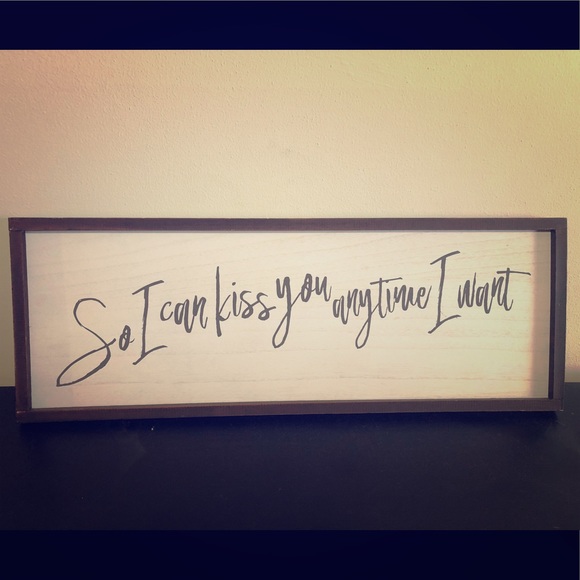 So I can kiss you anytime I want